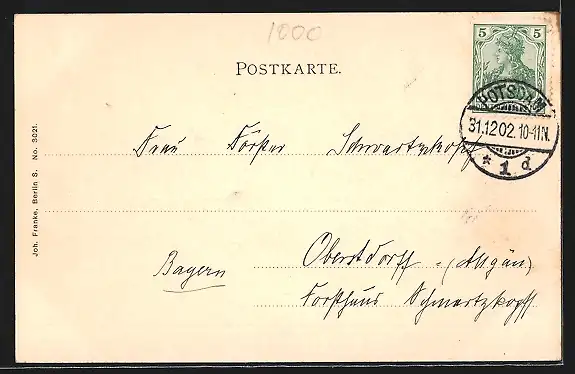 1000
5 5
POSTKARTE.
POTSDAM
31.12 02. 10-11N.
* 1 d
Frau Förster Schwartzkopff
Oberstdorff - (Allgäu)
Bayern
Forsthaus Schwartzkopff
Joh. Franke, Berlin S. No. 3021.